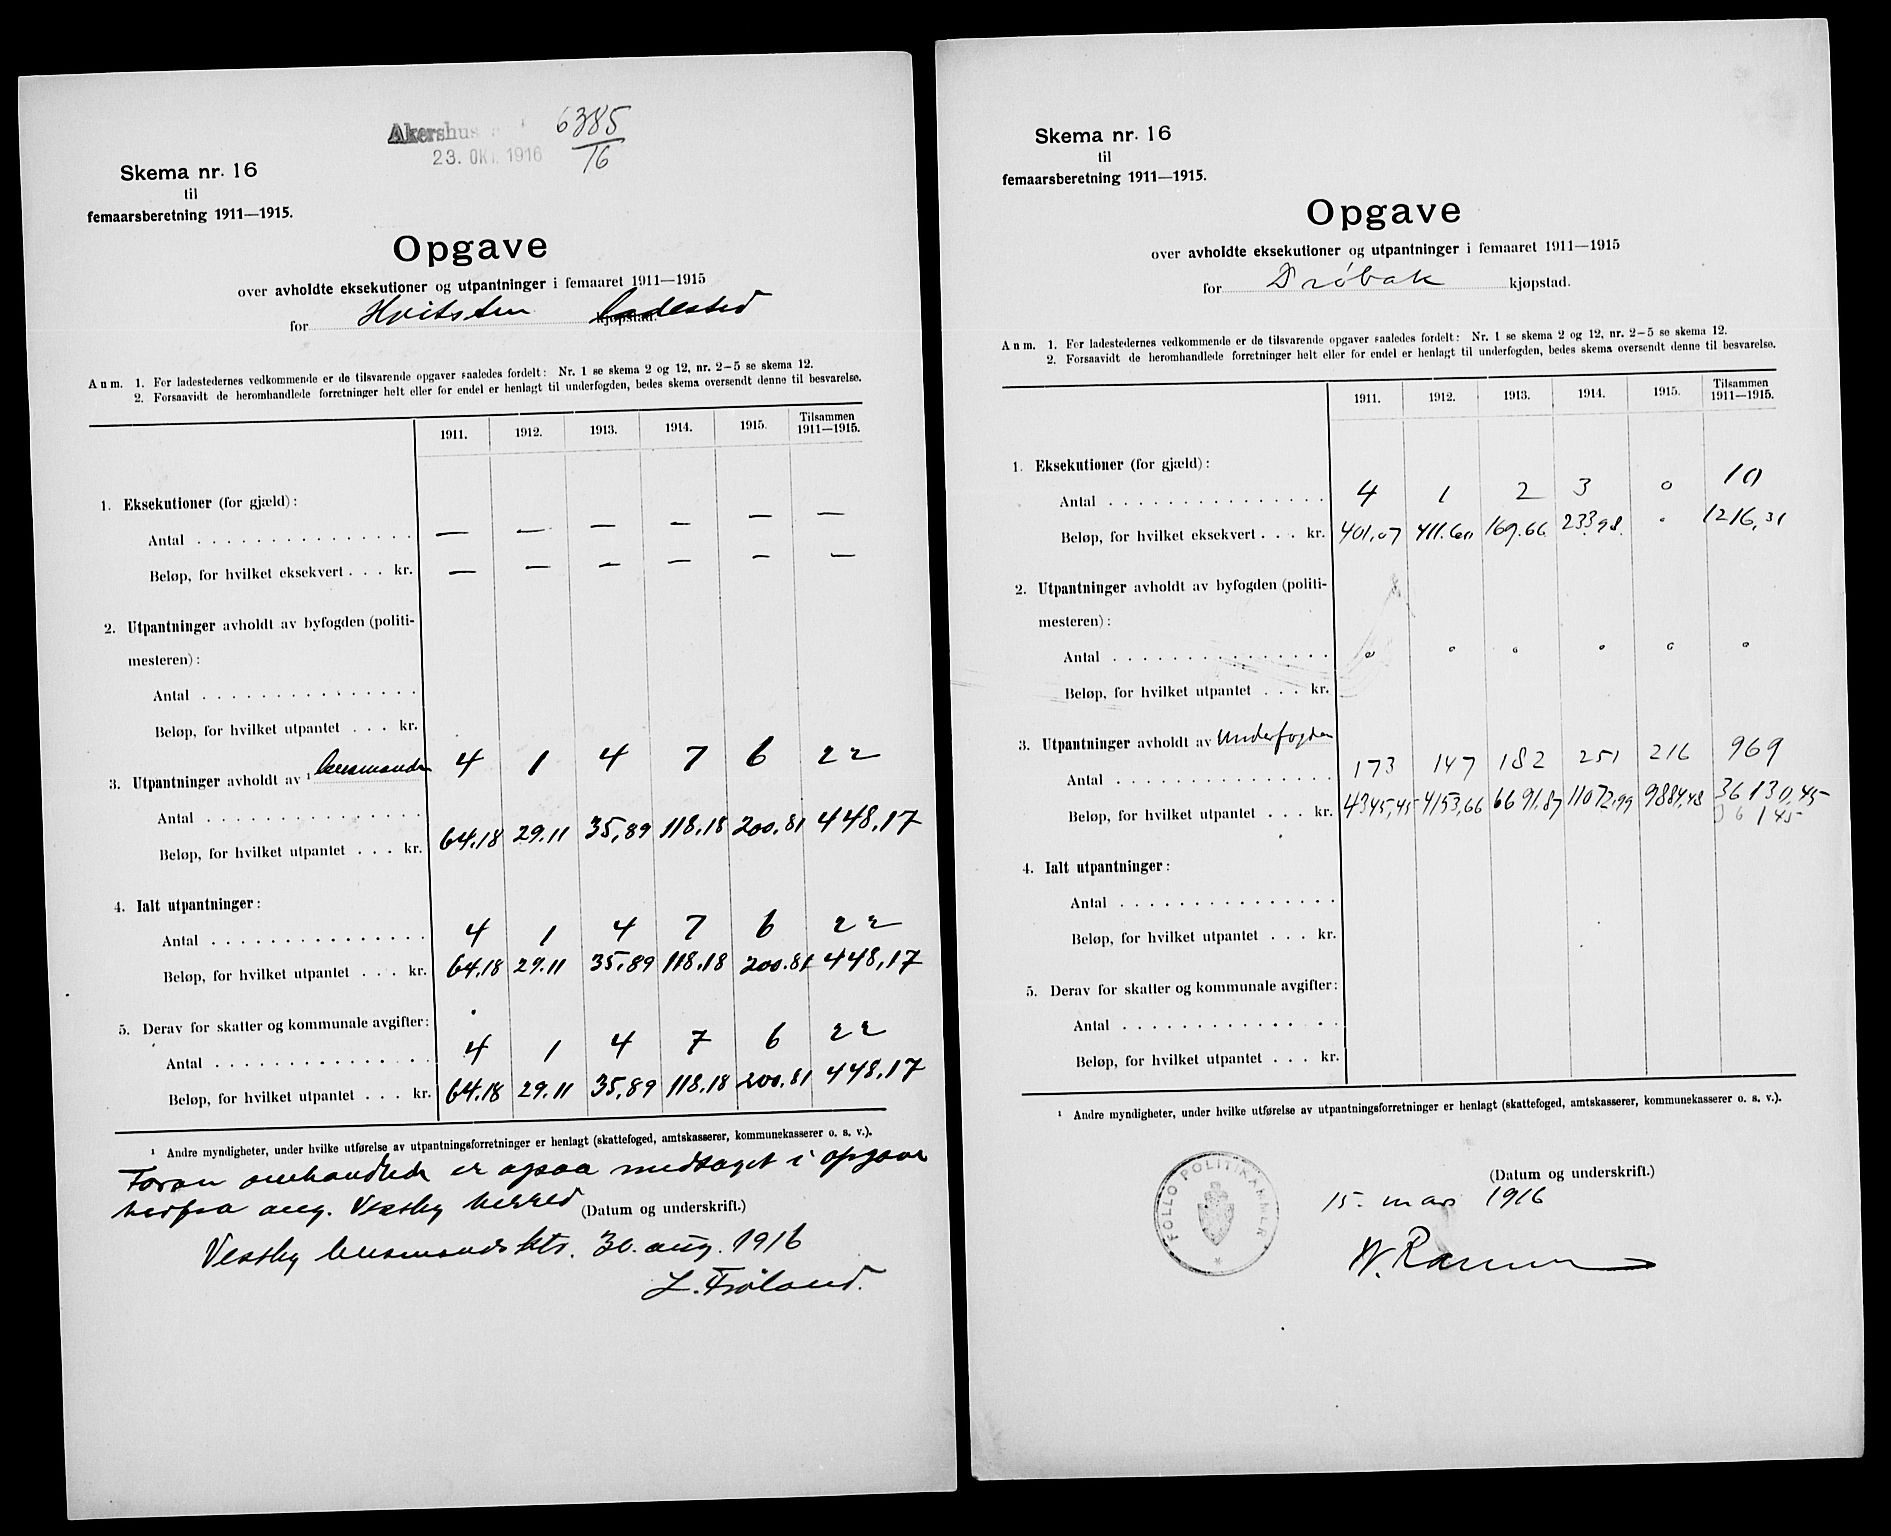 Akershus
6385
/16
23. OKT. 1916
Skema nr. 16
til
femaarsberetning 1911—1915.
Opgave
over avholdte eksekutioner og utpantninger i femaaret 1911—1915
for Hvitsten kjøpstad. ladested
Anm. 1. For ladestedernes vedkommende er de tilsvarende opgaver saaledes fordelt: Nr. 1 se skema 2 og 12, nr. 2—5 se skema 12.
2. Forsaavidt de heromhandlede forretninger helt eller for endel er henlagt til underfogden, bedes skema oversendt denne til besvarelse.
1911. 1912. 1913. 1914. 1915. Tilsammen 1911—1915.
1. Eksekutioner (for gjæld):
Antal — — — — — —
Beløp, for hvilket eksekvert . . . kr. — — — — — —
2. Utpantninger avholdt av byfogden (politi-
mesteren):
Antal
Beløp, for hvilket utpantet . . . kr.
3. Utpantninger avholdt av ¹ lensmanden
Antal 4 1 4 7 6 22
Beløp, for hvilket utpantet . . . kr. 64.18 29.11 35,89 118.18 200.81 448,17
4. Ialt utpantninger:
Antal 4 1 4 7 6 22
Beløp, for hvilket utpantet . . . kr. 64.18 29.11 35.89 118.18 200.81 448,17
5. Derav for skatter og kommunale avgifter:
Antal 4 1 4 7 6 22
Beløp, for hvilket utpantet . . . kr. 64.18 29.11 35,89 118.18 200.81 448.17
¹ Andre myndigheter, under hvilke utførelse av utpantningsforretninger er henlagt (skattefoged, amtskasserer, kommunekasserer o. s. v.).
Foran omhandlede er ogsaa medtaget i opgave
herfra ang. Vestby herred
(Datum og underskrift.)
Vestby lensmandskts. 30. aug. 1916
L. Frøland.
Skema nr. 16
til
femaarsberetning 1911—1915.
Opgave
over avholdte eksekutioner og utpantninger i femaaret 1911—1915
for Drøbak kjøpstad.
Anm. 1. For ladestedernes vedkommende er de tilsvarende opgaver saaledes fordelt: Nr. 1 se skema 2 og 12, nr. 2—5 se skema 12.
2. Forsaavidt de heromhandlede forretninger helt eller for endel er henlagt til underfogden, bedes skema oversendt denne til besvarelse.
1911. 1912. 1913. 1914. 1915. Tilsammen 1911—1915.
1. Eksekutioner (for gjæld):
Antal 4 1 2 3 0 10
Beløp, for hvilket eksekvert . . . kr. 401,07 411.60 169.66 233.98. 0 1216,31
2. Utpantninger avholdt av byfogden (politi-
mesteren):
Antal 0 0 0 0 0 0
Beløp, for hvilket utpantet . . . kr.
3. Utpantninger avholdt av Underfogden
Antal 173 147 182 251 216 969
Beløp, for hvilket utpantet . . . kr. 4345,45 4153,66 6691.87 11072,99 9884,48 36130,45
4. Ialt utpantninger:
Antal
Beløp, for hvilket utpantet . . . kr.
5. Derav for skatter og kommunale avgifter:
Antal
Beløp, for hvilket utpantet . . . kr.
¹ Andre myndigheter, under hvilke utførelse av utpantningsforretninger er henlagt (skattefoged, amtskasserer, kommunekasserer o. s. v.).
FOLLO POLITIKAMMER
(Datum og underskrift.)
15. mars 1916